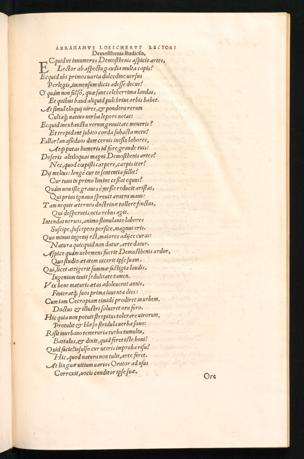 ABRAHAMUS LOESCHERUS LECTORI
Demosthenis studioso.
ECquid ut innumeras Demosthenis aspicis artes,
Lector ab aspectu gaudia multa capis?
Ecquid ubi primos varia dulcedine versus
Perlegis, immensum dicis adesse decus?
O quàm non falsò, quæ sunt celeberrima laudas,
Et quibus haud aliquid pulchrius orbis habet.
At simul eloquij vires, et pondera rerum
Cultaque naturæ verba lepore notas:
Ecquid inexhausta rerum gravitate moveris?
Et trepidant subito corda subacta metu?
Fallor? an assiduus dum cernis inesse labores,
Atque putas humeris id fore grande tuis:
Deseris altiloqui magni Demosthenis artes?
Nec, quod cœpisti carpere, carpis iter?
Dij melius: longè cur te sententia fallit?
Cur tuus in primo limine cessat equus?
Quàm non iste graves messe reducit aristas,
Qui prius ignava spreuit aratra manu:
Tam nequit æternos doctrinæ tollere fructus,
Qui desperatis ocia rebus agit.
Intendas nervos, animo stimulante labores
Suscipe, susceptos perfice, magnus eris.
Quo minus ingenij est, maiores adijce curas:
Natura quicquid non datur, arte datur.
Aspice quàm vehemens fuerit Demosthenis ardor,
Quo studio ætatem vicerit ipse suam.
Qui, licet attigerit summæ fastigia laudis,
Ingenium tenuit sedulitate tamen.
Vix bene maturis ætas adoleverat annis,
Fuderatque suos prima iuventa dies:
Cum tam Cecropiam timidi prodiret in urbem,
Doctus &amp; illustri solueret ora foro.
Hic quia non potuit strepitus tolerare virorum,
Protulit &amp; blæso stridula verba sono:
Risit inurbano temeraria turba tumultu,
Battalus, &amp; dixit, quid feret iste boni?
Quid facis? cur ueris improba risu?
Hic, quod natura non tulit, arte feret.
At linguæ vitium varios Orator ad usus
Correxit, vocis conditor ipse suæ.
Ora